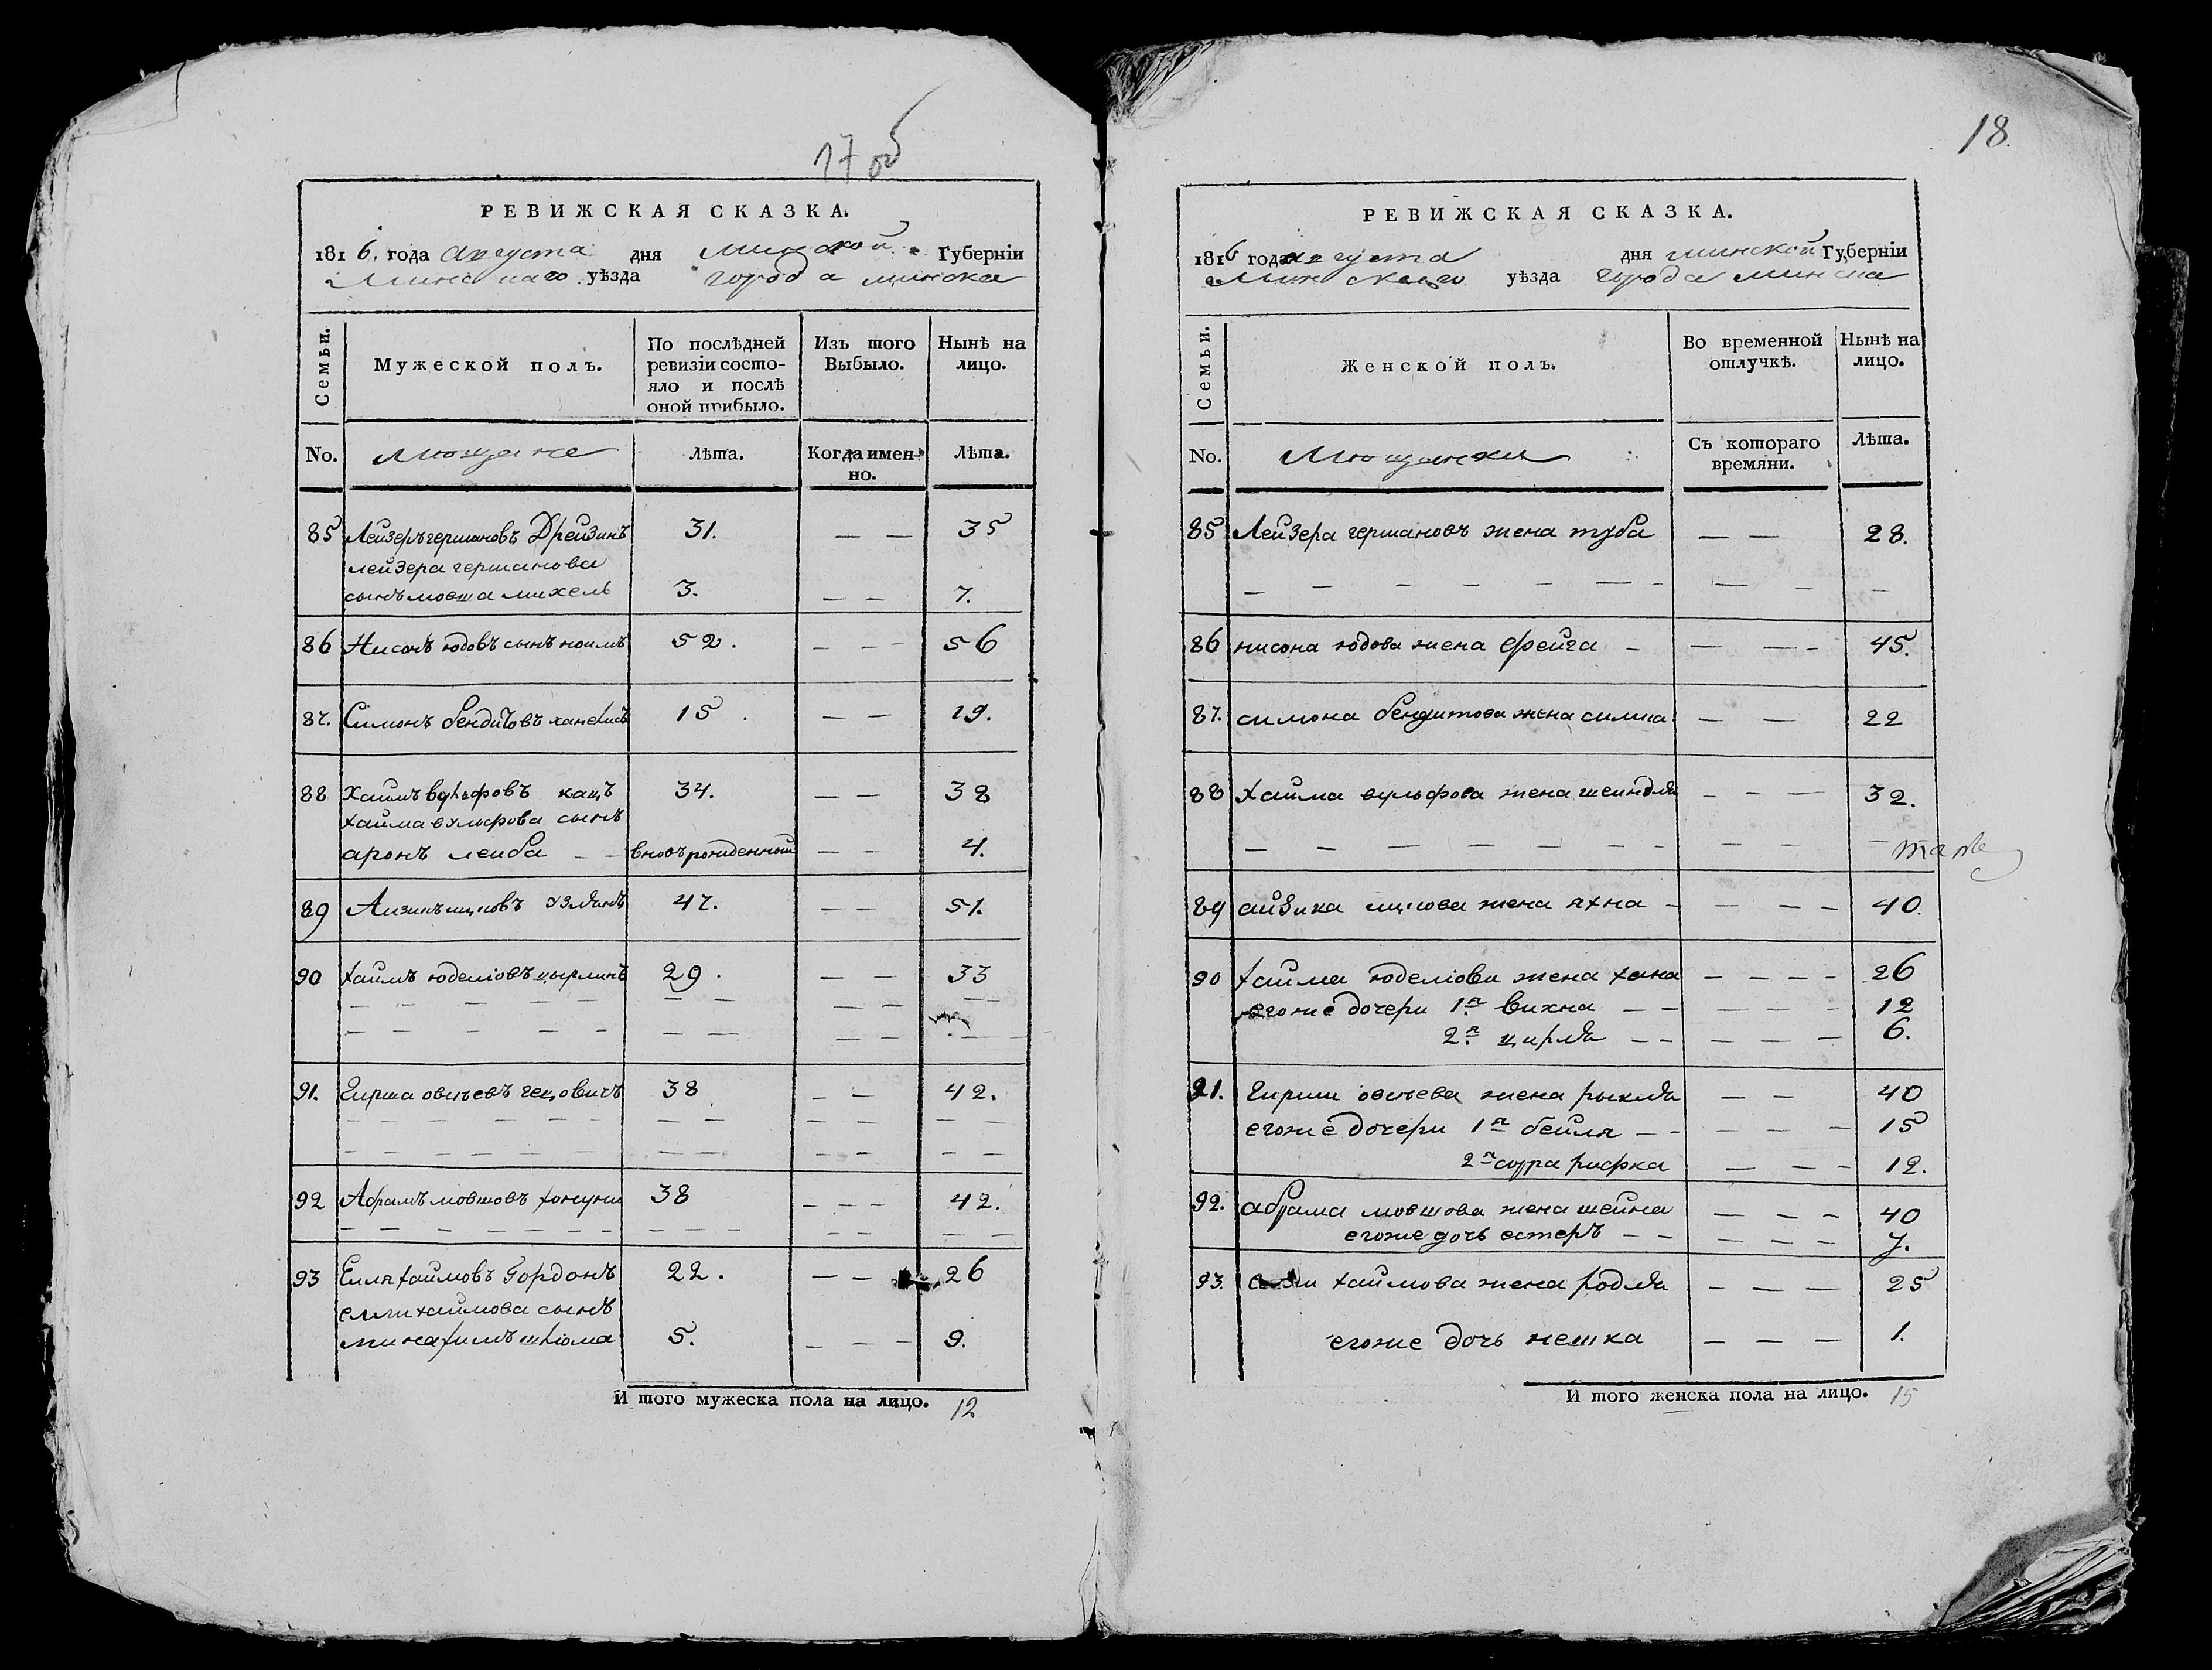 17 об
РЕВИЖСКАЯ СКАЗКА.
1816. года Августа дня Минской Губерніи
Минскаго уѣзда города минска
Семьи.
Мужеской полъ.
По послѣдней ревизіи состо-
яло и послѣ
оной прибыло.
Изъ того
Выбыло.
Нынѣ на
лицо.
No. Мещане Лѣта. Когда имен-
но. Лѣта.
85 Лейзеръ гершановъ Дрейзинъ 31. — — 35
лейзера гершанова
сынъ мовша михель 3. — — 7.
86 Нисонъ юдовъ сынъ 52. — — — 56
87. Симонъ бендитовъ 15. — — 19.
88 Хаимъ вульфовъ кацъ 34. — — 38
хаима вульфова сынъ
аронъ леиба — — вновърожденный — — 4.
89 Аизикъ ицковъ 47. — — 51.
90 хаимъ юделіовъ цырлинъ 29. — — 33
91. Гирша овсѣевъ гецовичъ 38 — — 42.
92 Абрамъ мовшовъ 38 — — — 42.
93 Еиля хаимовъ Гордонъ 22. — — 26
елли хаимова сынъ
минахимъ шліома 5. — — — 9.
И того мужеска пола на лицо. 12
18.
РЕВИЖСКАЯ СКАЗКА.
1816 года августа дня минской Губерніи
Минскаго уѣзда города минска
Семьи.
Женской полъ.
Во временной
отлучкѣ.
Нынѣ на
лицо.
No. Мещанки Съ котораго
времяни. Лѣта.
85 Лейзера гершановъ жена туба — — 28.
86 нисона юдова жена Фейга — — — - 45.
87. симона бендитова жена симка — — 22
88 хаима вульфова жена шеиндля — — — 32.
89 аизика ицкова жена яхна — — — — 40.
90 хаима юделіова жена хана — — — - 26
егоже дочери 1я вихна — — — — — - 12
2я цирля — — — — — 6.
91. Гирши овсѣева жена рыкля — — 40
егоже дочери 1я бейля — - — — — 15
2я сура рифка — — — 12.
92. абрама мовшова жена шейна — — — 40
егоже дочь естеръ — — — — — 7.
93. хаимова жена родля — — — 25
егоже дочь нешка — — — 1.
И того женска пола на лицо. 15